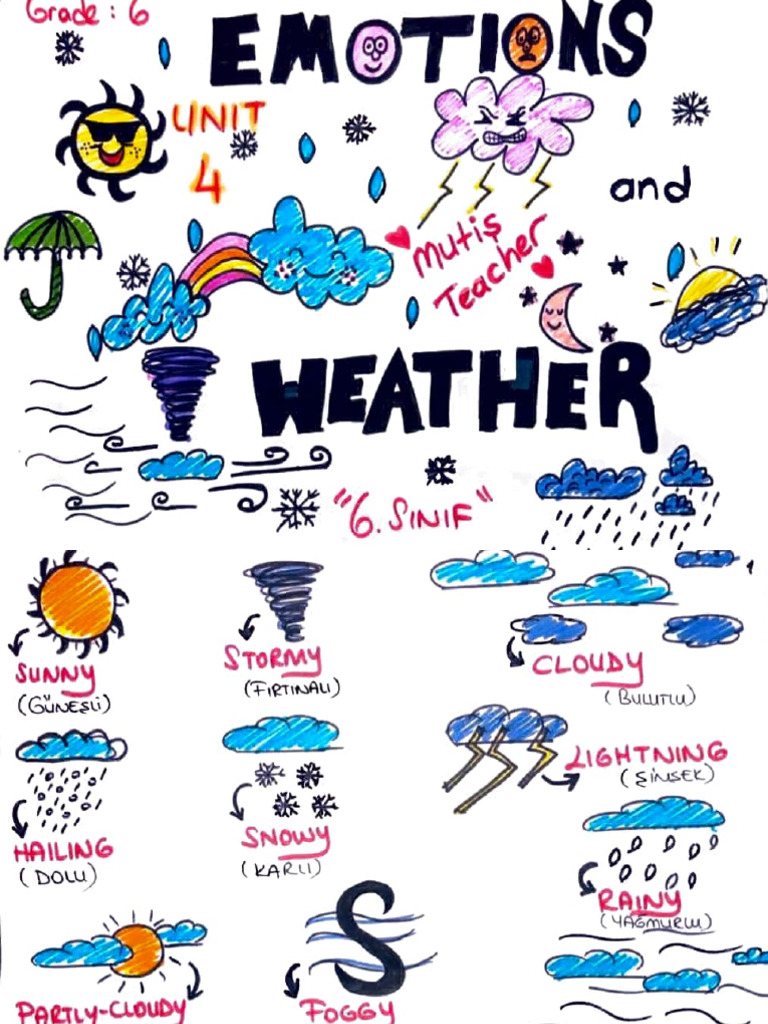 Grade : 6
EMOTIONS
UNIT
4
and
Mutiş
Teacher
WEATHER
"6. SINIF"
SUNNY
(GÜNEŞLİ)
STORMY
(FIRTINALI)
CLOUDY
(BULUTLU)
LIGHTNING
(ŞİMŞEK)
HAILING
(DOLU)
SNOWY
(KARLI)
RAINY
(YAĞMURLU)
PARTLY-CLOUDY
FOGGY